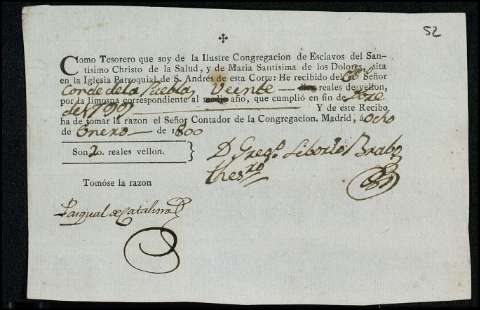 52
✠
Como Tesorero que soy de la Ilustre Congregacion de Esclavos del San-
tísimo Christo de la Salud, y de Maria Santísima de los Dolores, sita
en la Iglesia Parroquial de S. Andrés de esta Corte: He recibido del Señor
Conde de la Puebla, Veinte reales de vellon,
por la limosna correspondiente al medio año, que cumplió en fin de Dize
de 1799 Y de este Recibo
ha de tomar la razon el Señor Contador de la Congregacion. Madrid, á Ocho
de Enero de 1800
Son 20. reales vellon.
D. Greg.º Liborio Brabo
thes.ro
Tomóse la razon
Pasqual de Catalina